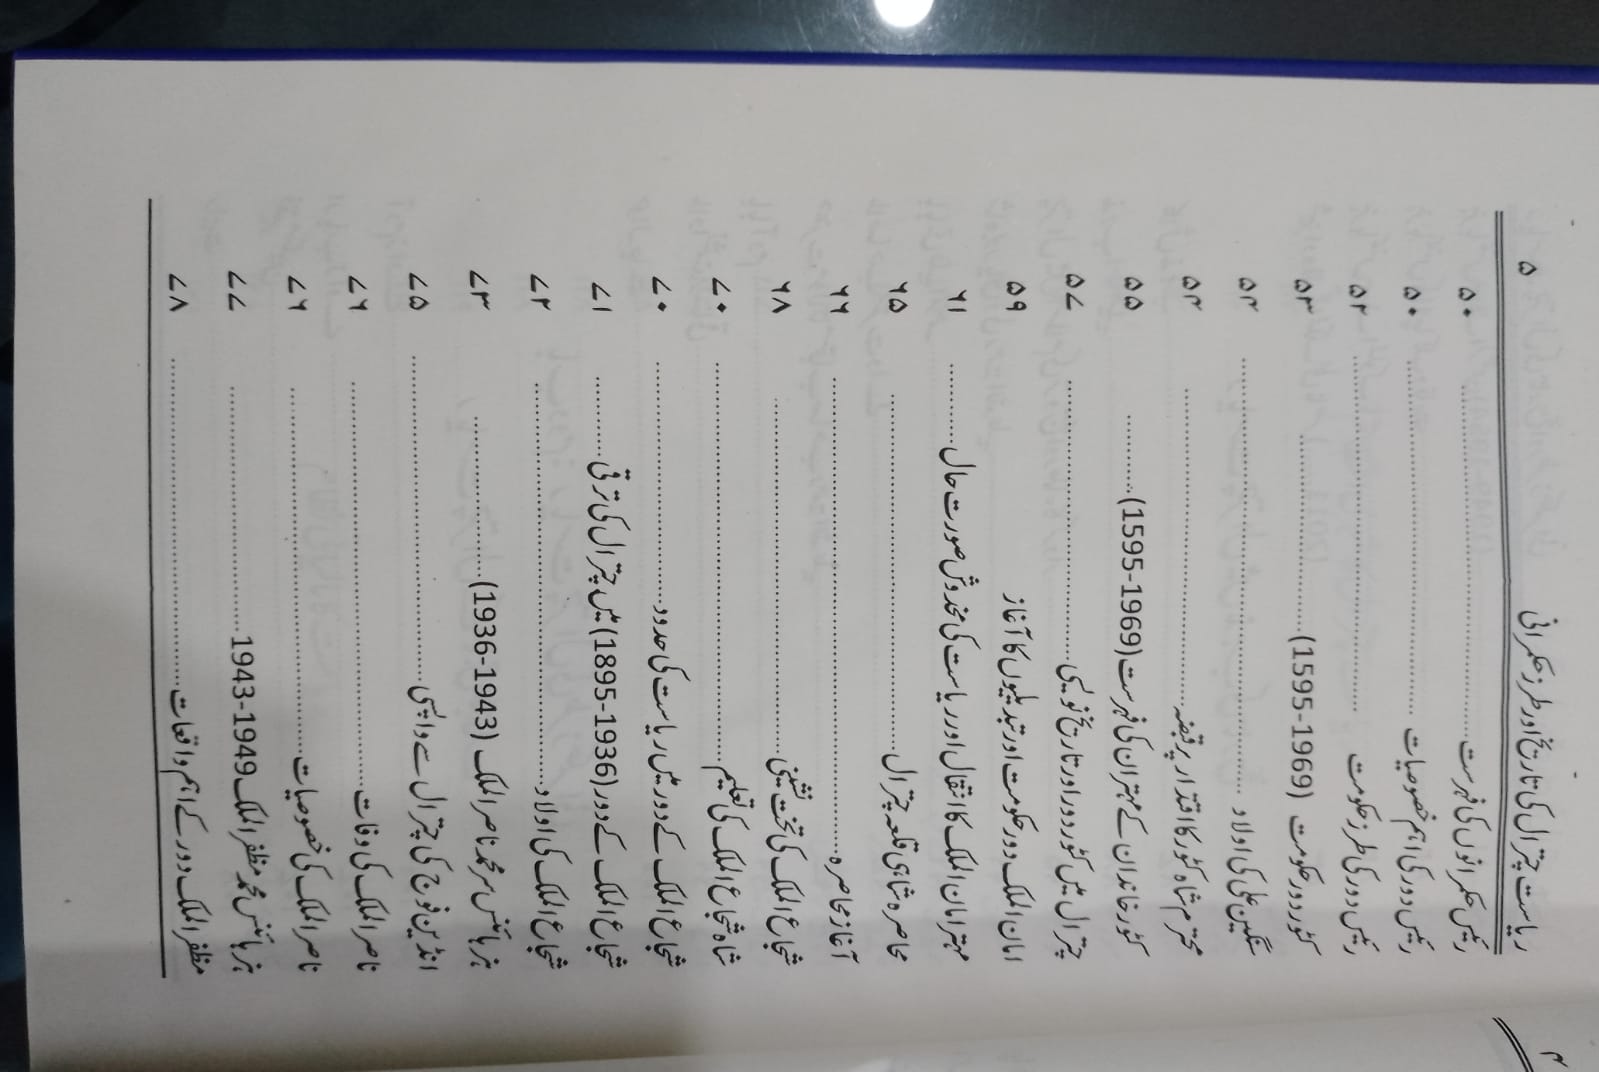 ریاست چترال کی تاریخ اور طرز حکمرانی ۵
رئیس حکمرانوں کی فہرست ۵۰
رئیس دور کی اہم خصوصیات ۵۰
رئیس دور کی طرز حکومت ۵۲
کٹور دور حکومت (1595-1969) ۵۳
سنگین علی کی اولاد ۵۴
محترم شاہ کٹور کا اقتدار پر قبضہ ۵۴
کٹور خاندان کے مہتران کی فہرست (1595-1969) ۵۵
چترال میں کٹور دور اور تاریخ نویسی ۵۷
امان الملک دور حکومت اور تبدیلیوں کا آغاز ۵۹
مہتر امان الملک کا انتقال اور ریاست کی مخدوش صورت حال ۶۱
محاصرہ شاہی قلعہ چترال ۶۵
آغاز محاصرہ ۶۶
شجاع الملک کی تخت نشینی ۶۸
شاہ شجاع الملک کی تعلیم ۷۰
شجاع الملک کے دور میں ریاست کی حدود ۷۰
شجاع الملک کے دور (1895-1936) میں چترال کی ترقی ۷۱
شجاع الملک کی اولاد ۷۲
ہزہائنس سر محمد ناصر الملک (1936-1943) ۷۳
انڈین فوج کی چترال سے واپسی ۷۵
ناصر الملک کی وفات ۷۶
ناصر الملک کی خصوصیات ۷۶
ہزہائنس محمد مظفر الملک 1943-1949 ۷۷
مظفر الملک دور کے اہم واقعات ۷۸
۴